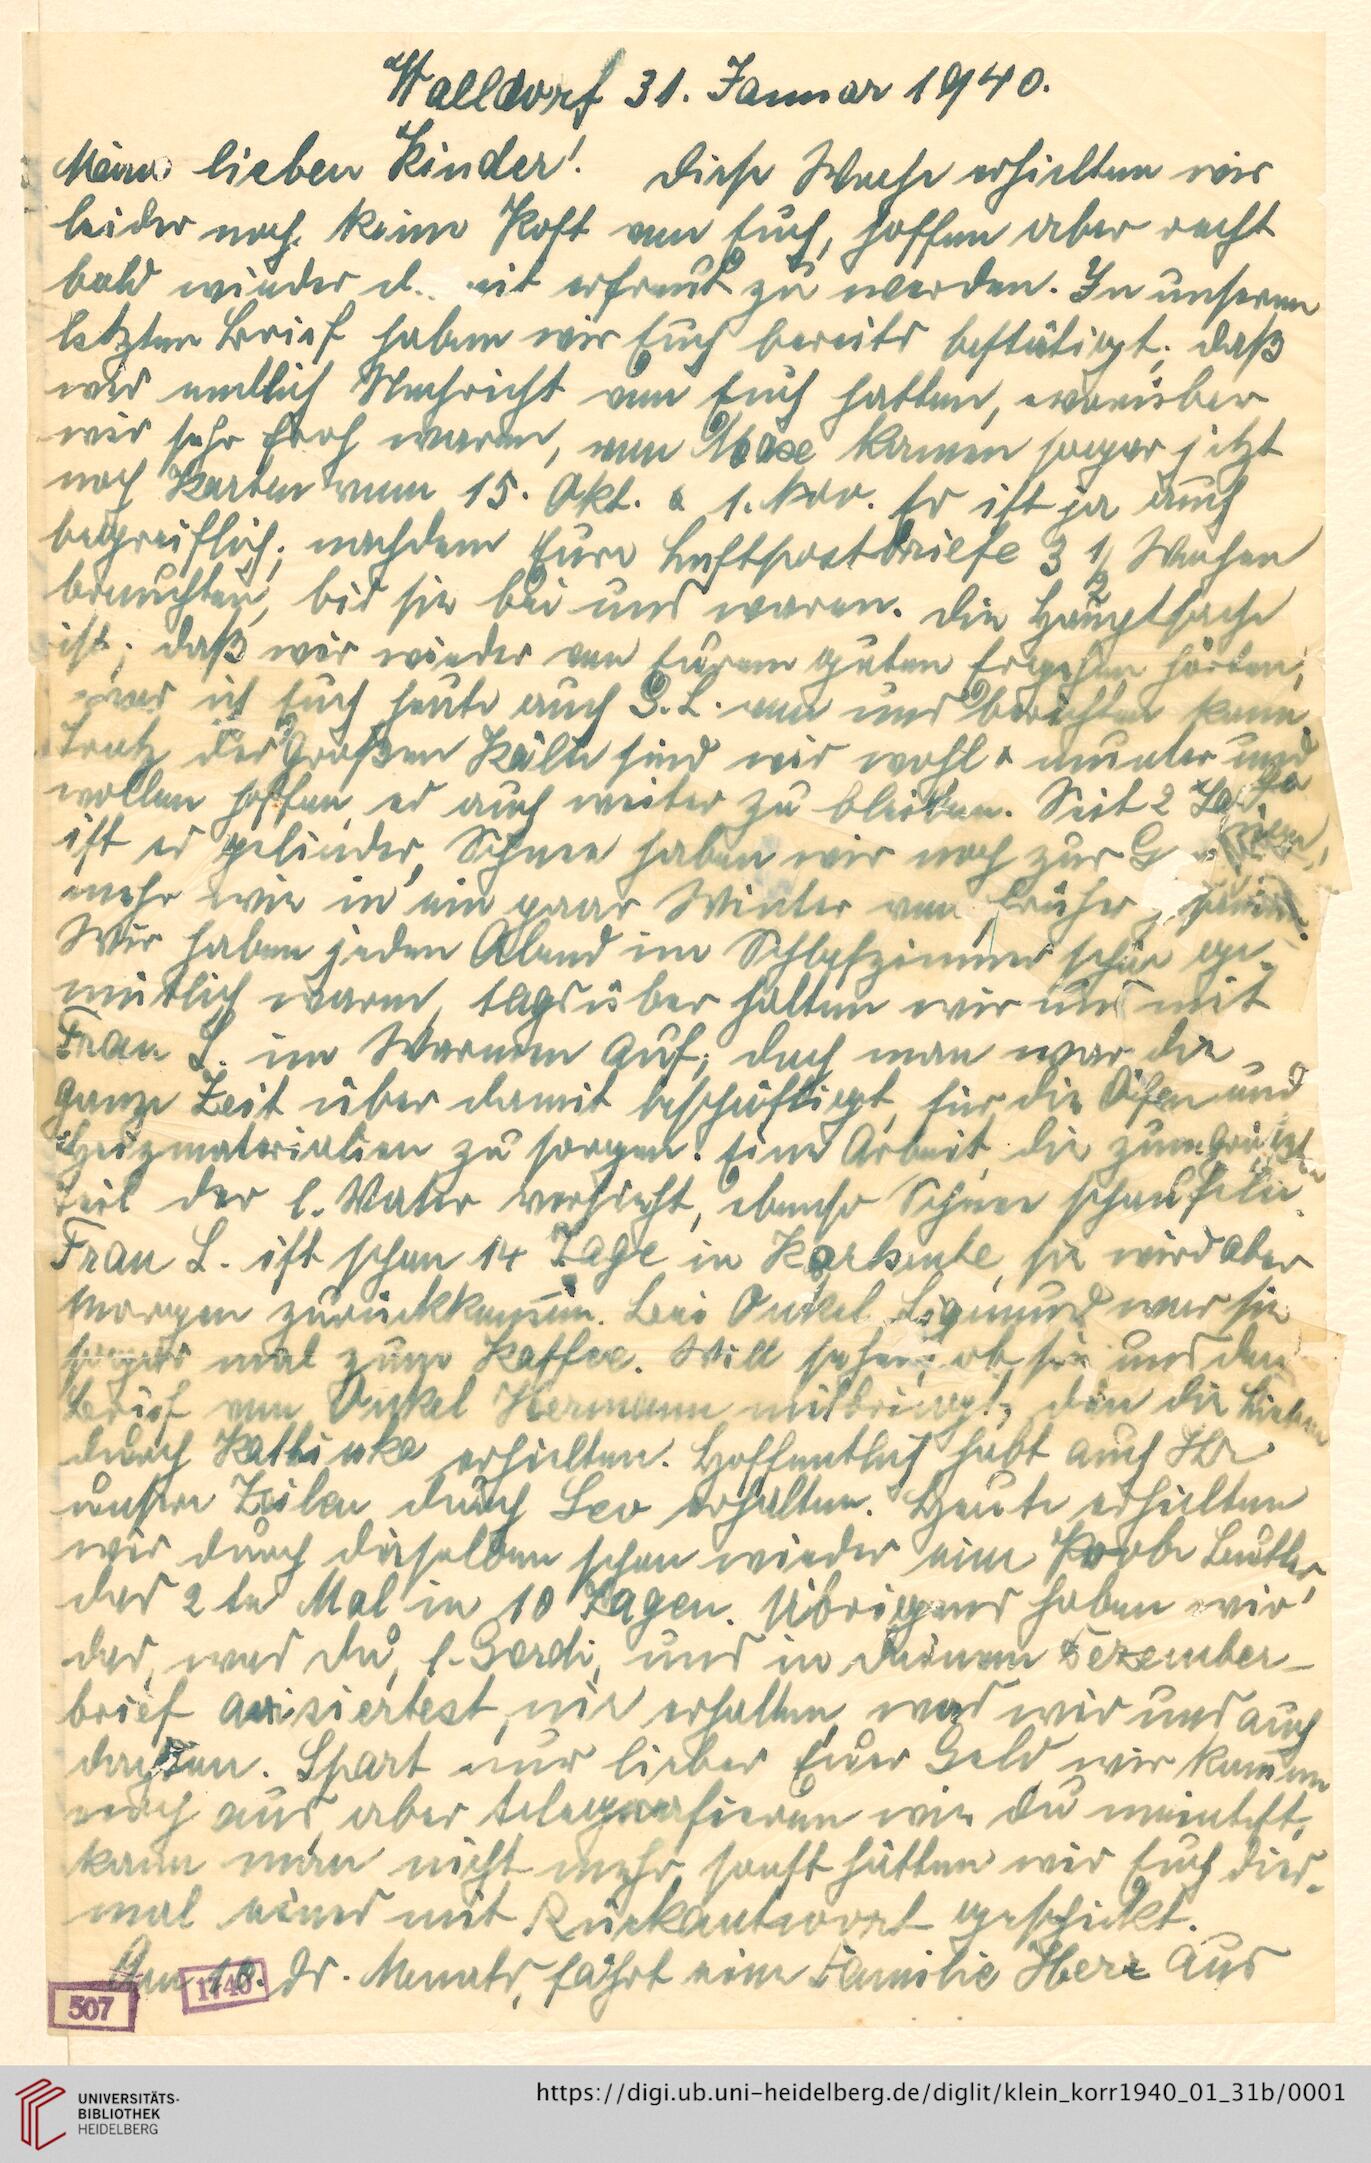 Walldorf 31. Januar 1940.
Meine lieben Kinder! Diese Woche erhielten wir
leider noch keine Post von Euch, hoffen aber recht
bald wieder erfreut zu werden. In unserem
letzten Brief haben wir Euch bereits bestätigt, daß
wir endlich Nachricht von Euch hatten, worüber
wir sehr froh waren, von Max kamen sogar jetzt
noch Karten vom 15. Okt. & 1. Nov. Es ist ja auch
begreiflich, nachdem Eure Luftpostbriefe 3 1/2 Wochen
brauchten, bis sie bei uns waren. Die Hauptsache
ist, daß wir wieder von Eurem guten Ergehen hörten,
was ich Euch heute auch G. L. von uns berichten kann.
Trotz der großen Kälte sind wir wohl & munter und
wollen hoffen, es auch weiter zu bleiben. Seit 2 Tage
ist es gelinder, Schnee haben wir noch zur
mehr wie in ein paar Winter von früher
Wir haben jeden Abend im Schlafzimmer schön ge-
mütlich warm, tagsüber halten wir uns mit
Frau L. im Warmen auf, doch man war die
ganze Zeit über damit beschäftigt, für die Öfen und
Heizmaterialien zu sorgen. Eine Arbeit, die zum größten
Teil der l. Vater versieht, ebenso Schnee schaufeln.
Frau L. ist schon 14 Tage in Karlsruhe, sie wird aber
morgen zurückkommen. Bei Onkel Sigmund war sie
sogar mal zum Kaffee. Will sehen, ob sie uns den
Brief von Onkel Hermann mitbringt, den die Lieben
durch Kathinka erhielten. Hoffentlich habt auch Ihr
unsere Zeilen durch Leo erhalten. Heute erhielten
wir durch dieselben schon wieder eine Probe Butter,
das 2te Mal in 10 Tagen. Übrigens haben wir
das, was Du, l. Gerdi, uns in Deinem Dezember-
brief avisiertest, nie erhalten, was wir uns auch
dachten. Spart nur lieber Euer Geld wir kommen
noch aus, aber telegrafieren wie Du meintest,
kann man nicht mehr, sonst hätten wir Euch dies-
mal eines mit Rückantwort geschickt.
Am 10. ds. Monats, fährt eine Familie Herz aus
507
1740
UNIVERSITÄTS-
BIBLIOTHEK
HEIDELBERG
https://digi.ub.uni-heidelberg.de/diglit/klein_korr1940_01_31b/0001